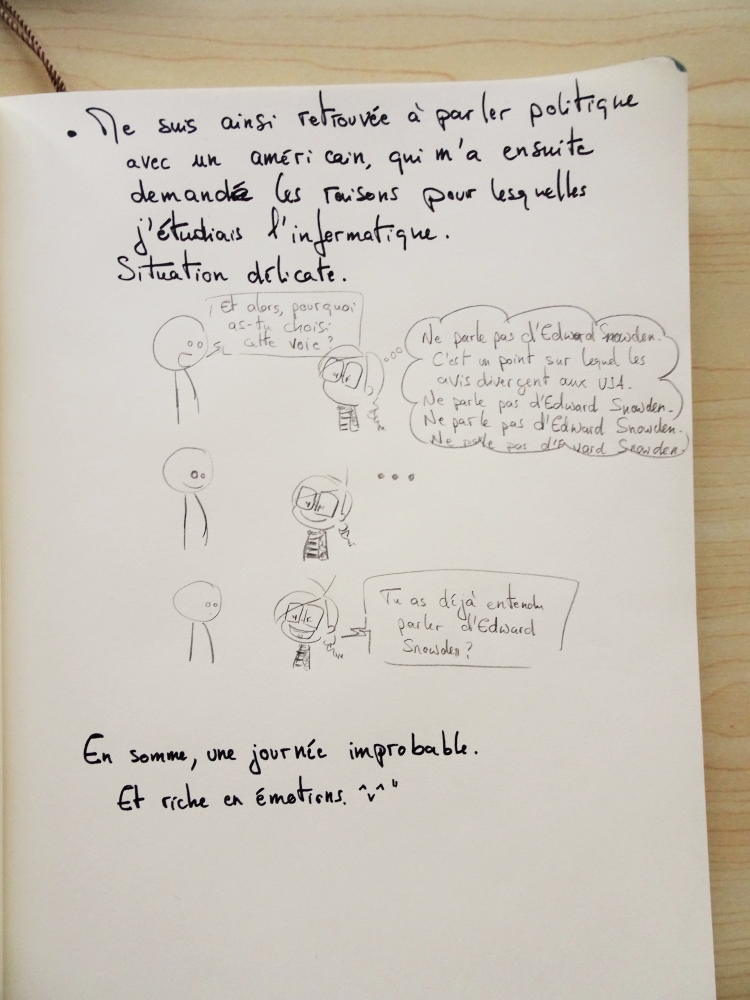 • Me suis ainsi retrouvée à parler politique
avec un américain, qui m'a ensuite
demandé les raisons pour lesquelles
j'étudiais l'informatique.
Situation délicate.
Et alors, pourquoi
as-tu choisi
cette voie ?
Ne parle pas d'Edward Snowden.
C'est un point sur lequel les
avis divergent aux USA.
Ne parle pas d'Edward Snowden.
Ne parle pas d'Edward Snowden.
Ne parle pas d'Edward Snowden.
...
Tu as déjà entendu
parler d'Edward
Snowden ?
En somme, une journée improbable.
Et riche en émotions. ^v^"